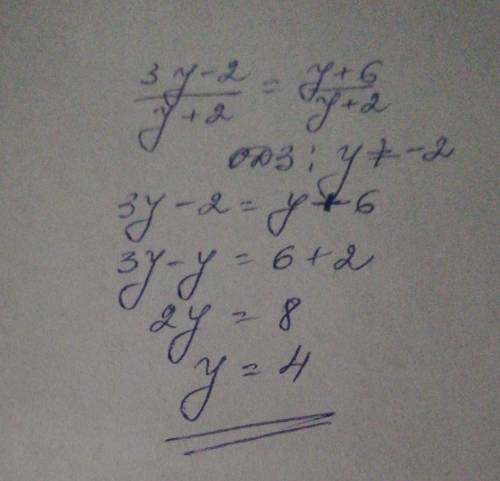 (3y-2)/(y+2) = (y+6)/(y+2)
ОДЗ: y ≠ -2
3y-2 = y+6
3y-y = 6+2
2y = 8
y = 4